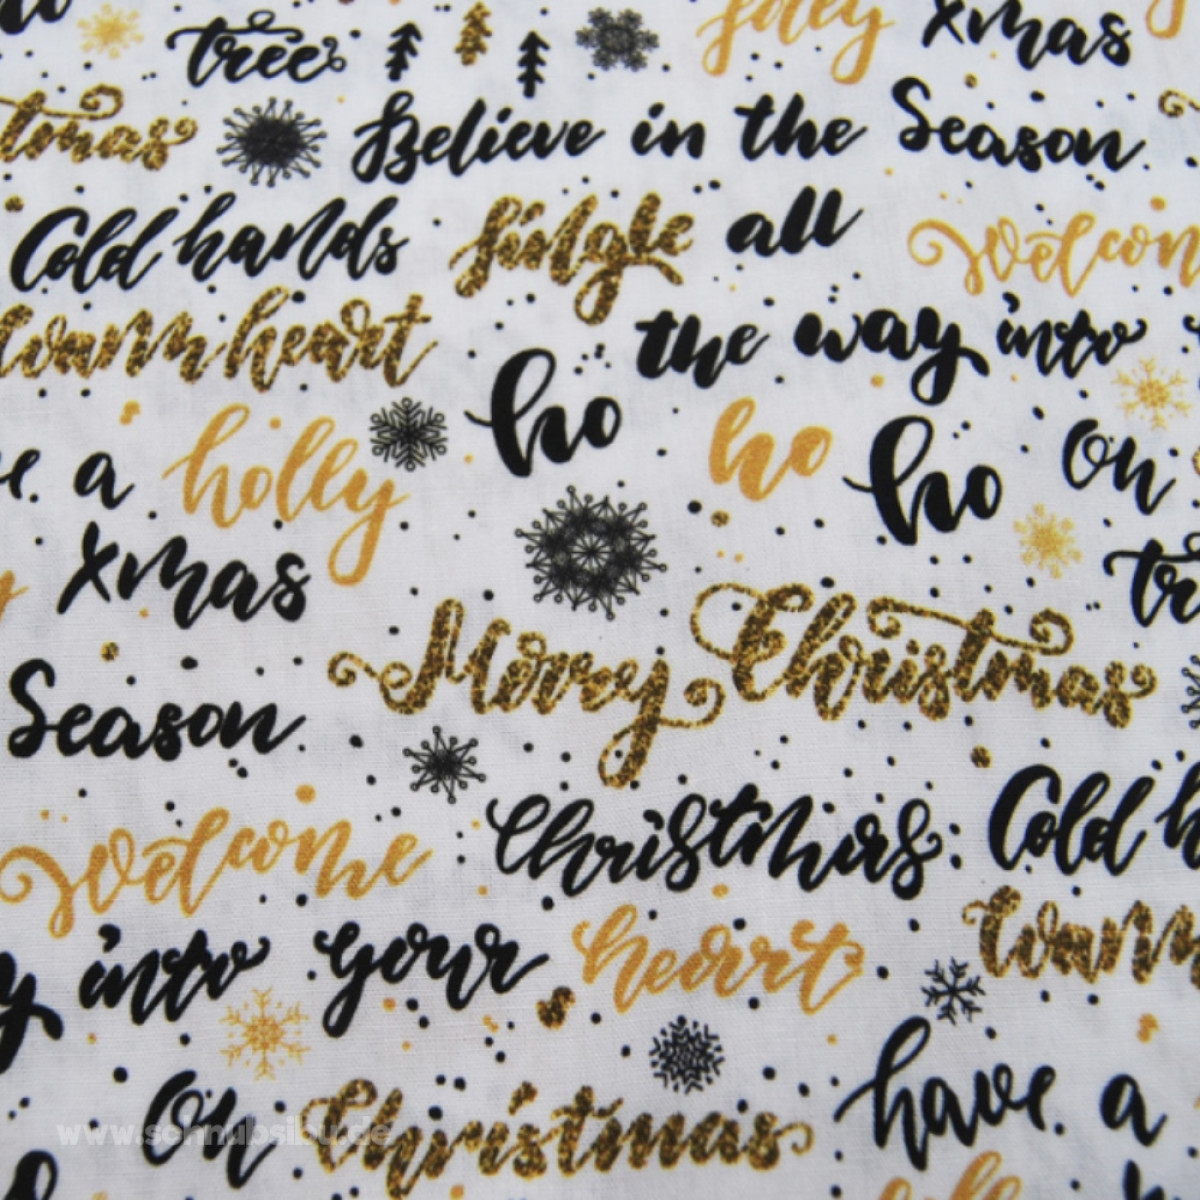 tree. Jolly Xmas
tmas Believe in the Season.
Cold hands Jingle all Welcom
Warm heart the way into
ho ho ho On
ve. a holly
Xmas tr
Season. Merry Christmas
Welcome Christmas: Cold h
y into your heart Warm
have. a
On Christmas
www.schnubsibu.de